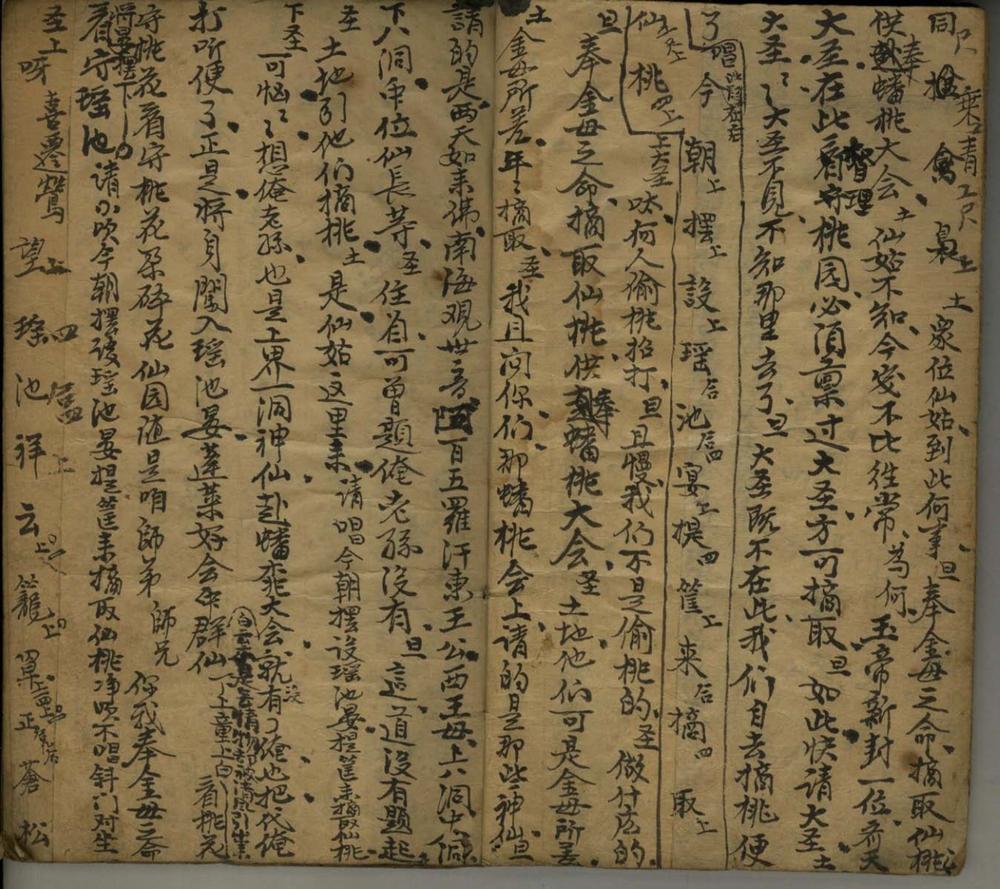 同 尺 搶 禽 乘 青 工尺 梟 上 土 衆位仙姑到此何事 旦 奉金母之命摘取仙桃
供奉蟠桃大会 土 仙姑不知今安不比往常 為何 玉帝新封一位齐天
大圣在此管理桃园必須禀过大圣方可摘取 旦 如此快請大圣 土
大圣〻〻大圣不見不知那里去了 旦 大圣既不在此我们自去摘桃便
了 唱 今 朝上 擺上 設上 瑶后 池后四 宴上 提四 筐上 来后 摘四 取上
仙上尺上 桃四上 上大圣 呔何人偷桃招打 旦 且慢我们不是偷桃的 圣 做什広的
旦 奉金母之命摘取仙桃供奉蟠桃大会 圣 土地他们可是金母所差
土 金母所差年〻摘取 圣 我且问你们那蟠桃会上請的是那些神仙 旦
請的是西天如来佛南海观世音 百五羅汗東王公西王母上八洞中洞
下八洞中位仙長等 圣 住首可曾題俺老孫没有 旦 這道没有題起
圣 土地引他们摘桃 土 是仙姑这里来 請 唱今朝擺设瑶池宴提筐来摘取仙桃
下圣 可恼〻想俺老孫也是上界一洞神仙赴蟠桃大会就没有了俺也把代俺
打听便了正是将身闖入瑶池宴蓬莱好会中群仙 上童上白 看桃元
守桃花看守桃花朶碎花仙园随是咱師弟 師兄 你我奉金母之命
看守瑶池 請 小吹今朝擺设瑶池宴提筐来摘取仙桃净吹不唱斜门对坐
圣上呀 喜遷鶯 望上 瑶四 池 祥上 云 籠上 罩 正 蒼 松